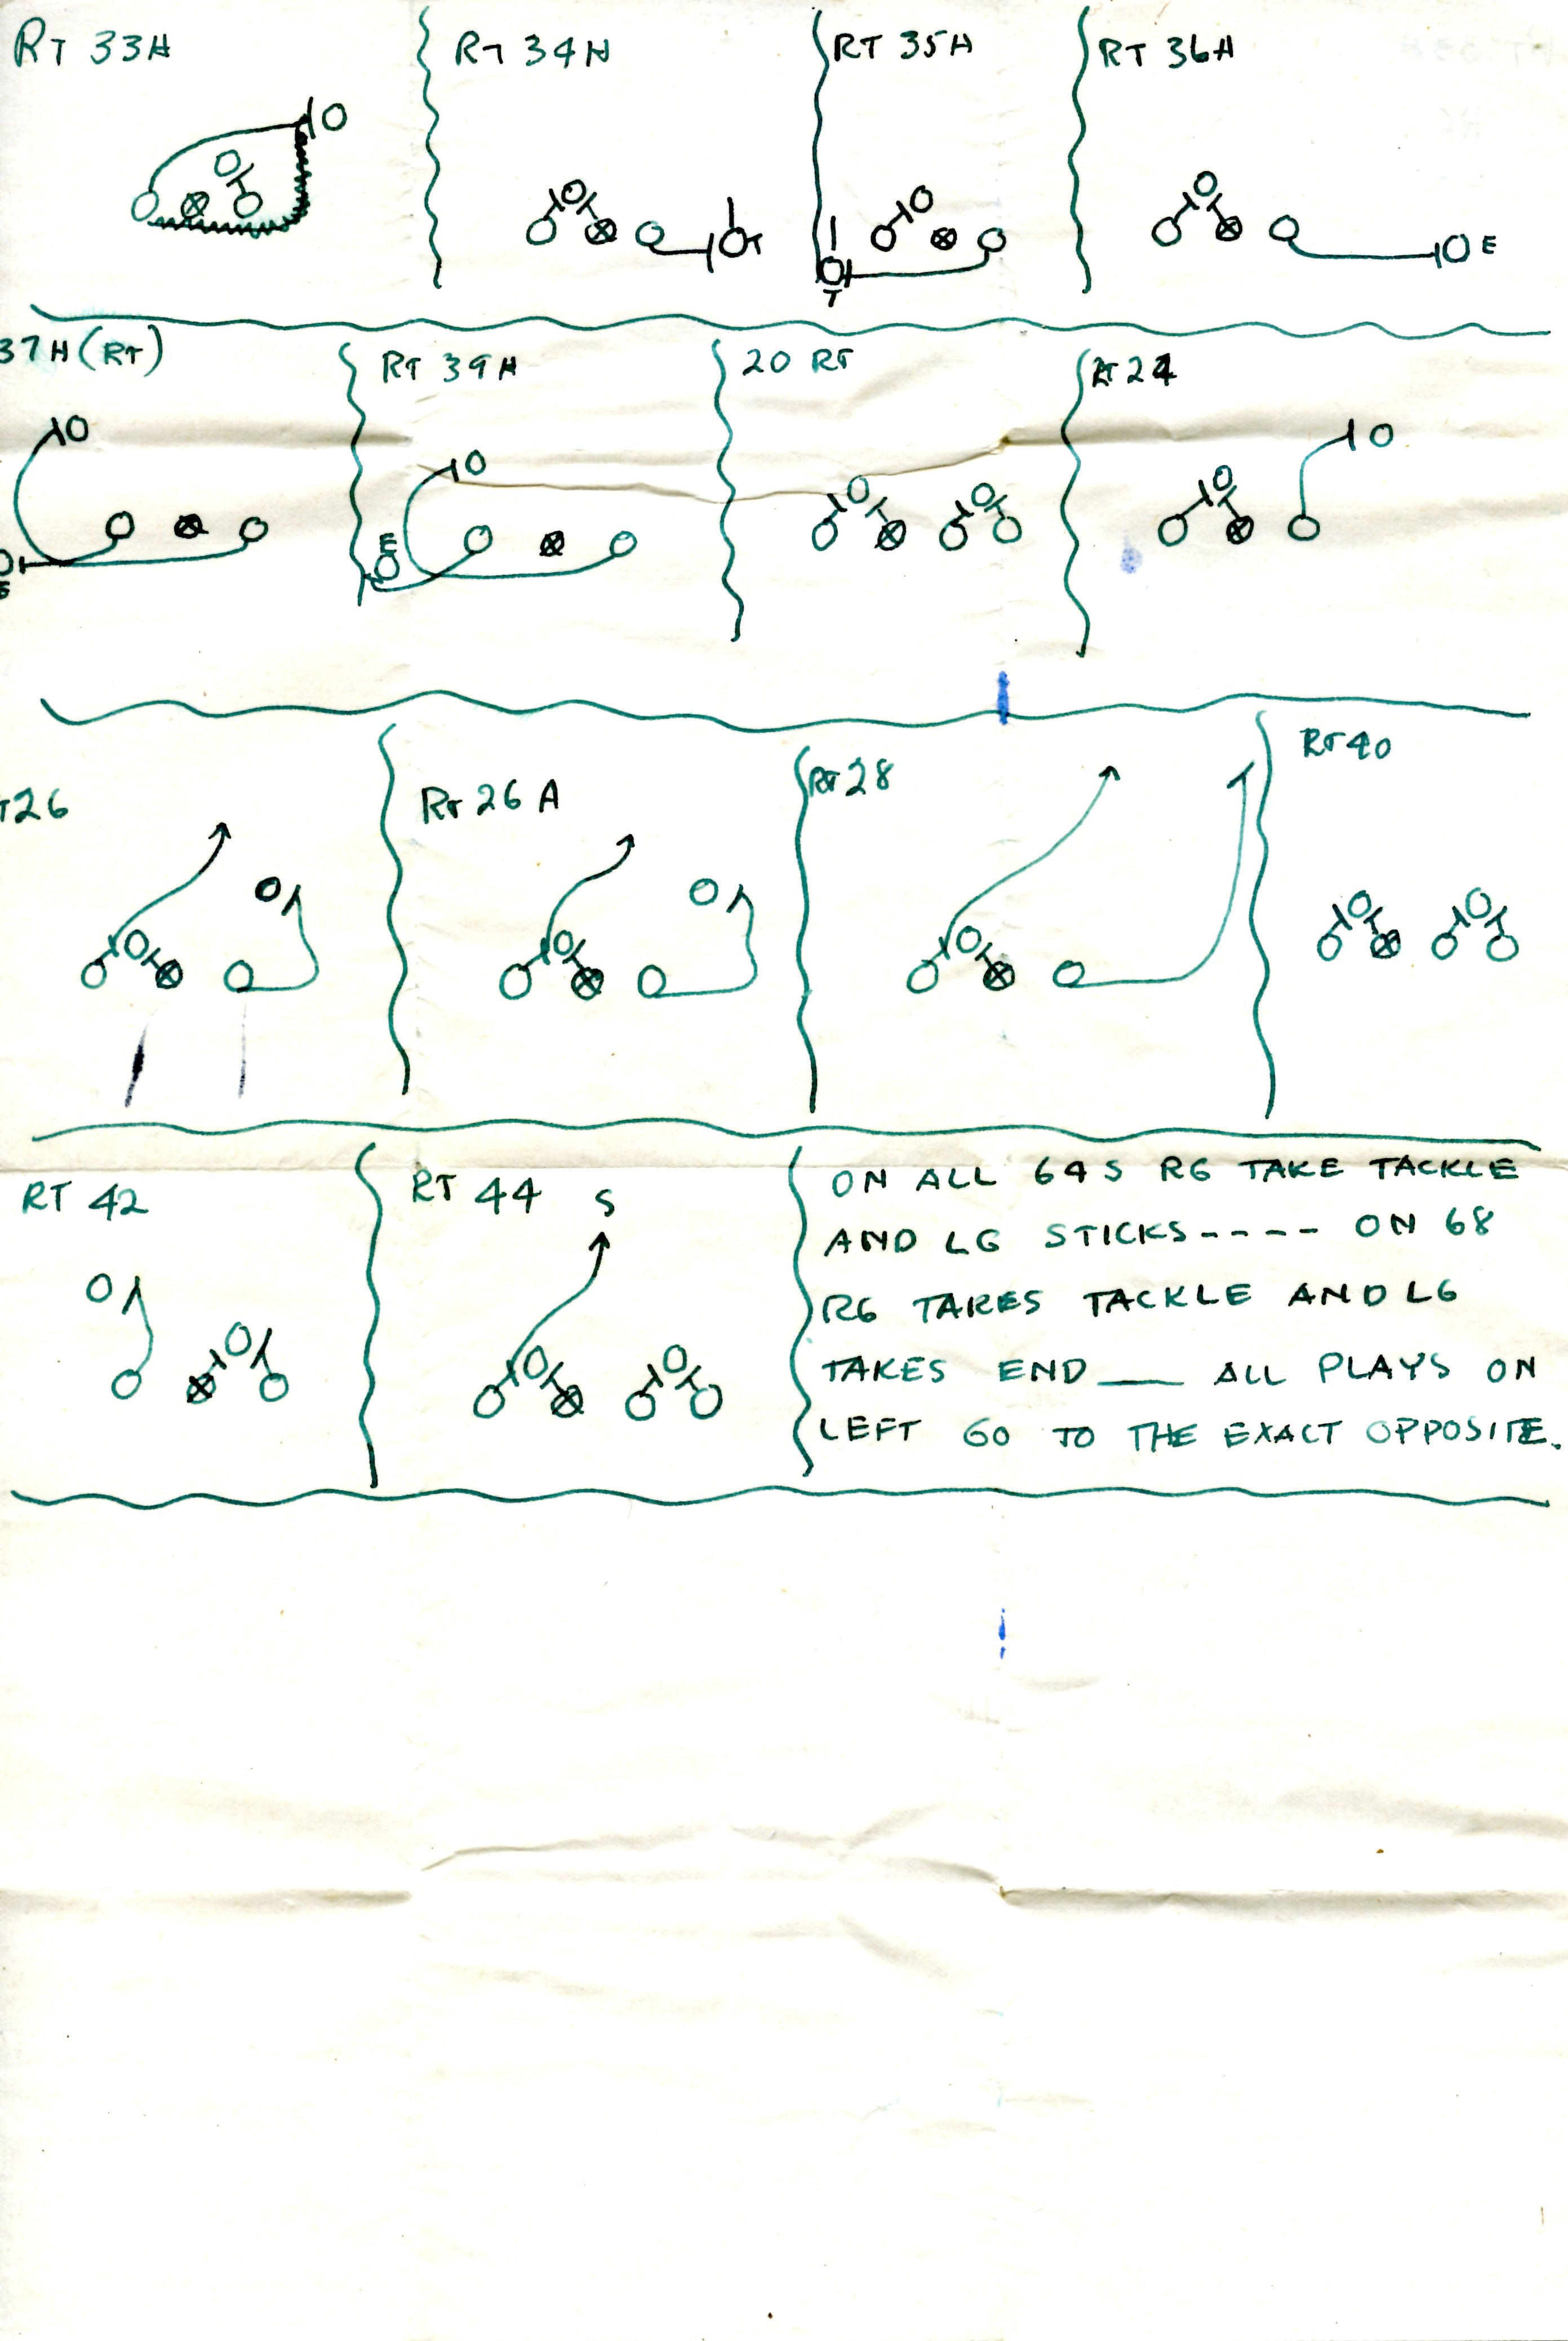 RT 33H
RT 34H
RT 35H
RT 36H
T
T
E
37H (RT)
RT 39H
20 RT
RT 24
E
E
T26
RT 26 A
RT 28
RT 40
RT 42
RT 44
S
ON ALL 64S RG TAKE TACKLE
AND LG STICKS---- ON 68
RG TAKES TACKLE AND LG
TAKES END ___ ALL PLAYS ON
LEFT GO TO THE EXACT OPPOSITE.